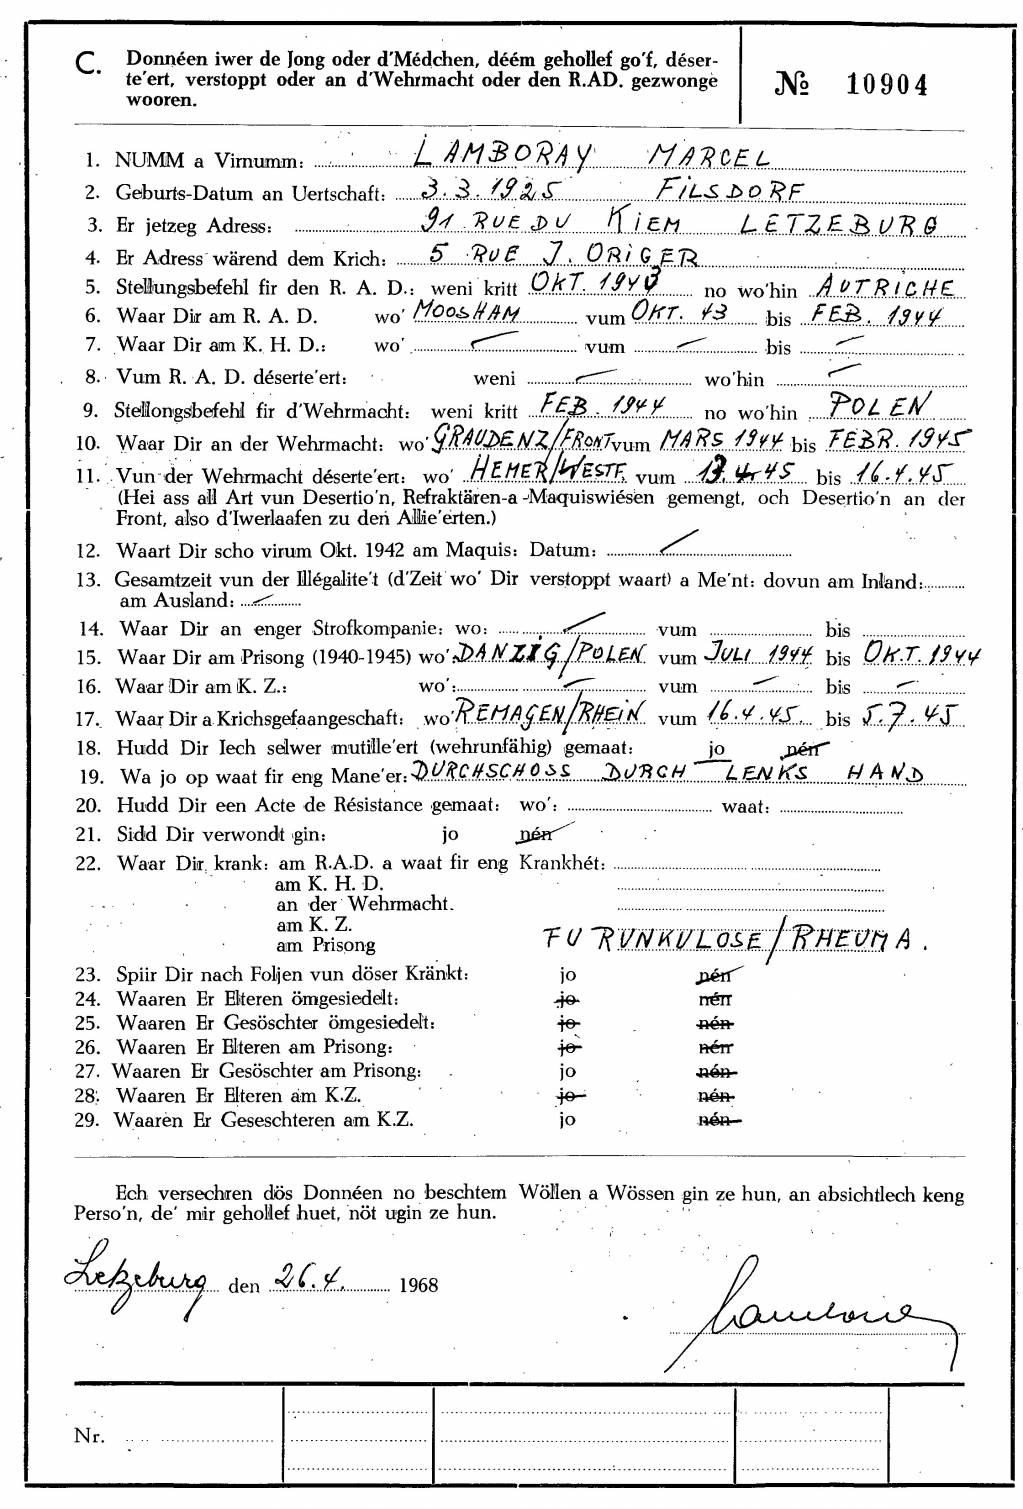 C. Donnéen iwer de Jong oder d'Médchen, déém gehollef go'f, déser-
te'ert, verstoppt oder an d'Wehrmacht oder den R.AD. gezwonge
wooren.
№ 10904
1. NUMM a Virnumm: LAMBORAY MARCEL
2. Geburts-Datum an Uertschaft: 3.3.1925 FILSDORF
3. Er jetzeg Adress: 91 RUE DU KIEM LETZEBURG
4. Er Adress wärend dem Krich: 5 RUE J. ORIGER
5. Stellungsbefehl fir den R. A. D.: weni kritt OKT. 1943 no wo'hin AUTRICHE
6. Waar Dir am R. A. D. wo' MOOSHAM vum OKT. 43 bis FEB. 1944
7. Waar Dir am K. H. D.: wo' vum bis
8. Vum R. A. D. déserte'ert: weni wo'hin
9. Stellongsbefehl fir d'Wehrmacht: weni kritt FEB. 1944 no wo'hin POLEN
10. Waar Dir an der Wehrmacht: wo' GRAUDENZ/FRONT vum MARS 1944 bis FEBR. 1945
11. Vun der Wehrmacht déserte'ert: wo' HEMER/WESTF. vum 13.4.45 bis 16.4.45
(Hei ass all Art vun Desertio'n, Refraktären-a-Maquiswiésen gemengt, och Desertio'n an der
Front, also d'Iwerlaafen zu den Allie'erten.)
12. Waart Dir scho virum Okt. 1942 am Maquis: Datum:
13. Gesamtzeit vun der Illégalite't (d'Zeit wo' Dir verstoppt waart) a Me'nt: dovun am Inland:
am Ausland:
14. Waar Dir an enger Strofkompanie: wo: vum bis
15. Waar Dir am Prisong (1940-1945) wo': DANZIG/POLEN vum JULI 1944 bis OKT. 1944
16. Waar Dir am K. Z.: wo': vum bis
17. Waar Dir a Krichsgefaangeschaft: wo' REMAGEN/RHEIN vum 16.4.45 bis 5.7.45
18. Hudd Dir Iech selwer mutille'ert (wehrunfähig) gemaat: jo nén
19. Wa jo op waat fir eng Mane'er: DURCHSCHOSS DURCH LENKS HAND
20. Hudd Dir een Acte de Résistance gemaat: wo': waat:
21. Sidd Dir verwondt gin: jo nén
22. Waar Dir krank: am R.A.D. a waat fir eng Krankhét:
am K. H. D.
an der Wehrmacht.
am K. Z.
am Prisong FURUNKULOSE/RHEUMA.
23. Spiir Dir nach Foljen vun döser Kränkt: jo nén
24. Waaren Er Elteren ömgesiedelt: jo nén
25. Waaren Er Gesöschter ömgesiedelt: jo nén
26. Waaren Er Elteren am Prisong: jo nén
27. Waaren Er Gesöschter am Prisong: jo nén
28. Waaren Er Elteren am K.Z. jo nén
29. Waaren Er Geseschteren am K.Z. jo nén
Ech versechren dös Donnéen no beschtem Wöllen a Wössen gin ze hun, an absichtlech keng
Perso'n, de' mir gehollef huet, nöt ugin ze hun.
Letzeburg den 26.4. 1968
Nr.